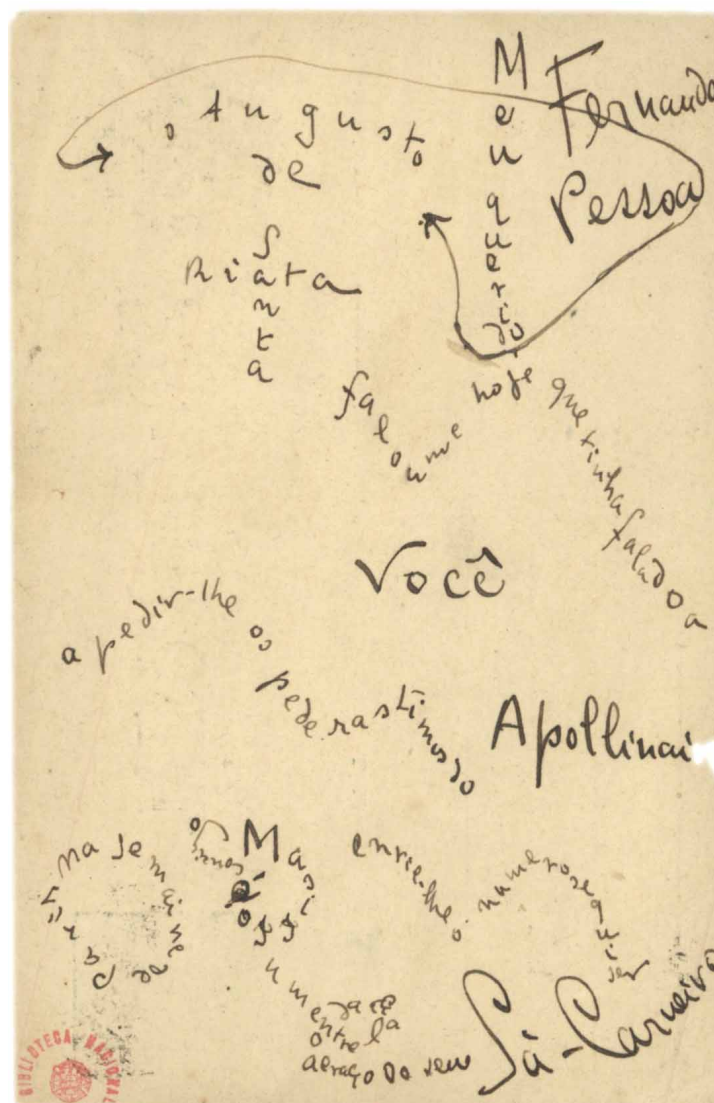 Meu querido
Fernando
Pessoa
o Augusto
de
Santa
Rita
falou-me hoje que tinha falado a
Você
a pedir-lhe os pederastimos do
Apollinai
na Semaine de Paris
Mas i
envie-lhe o numero se quiser
um
entrelaçado do seu
Sá-Carneiro
BIBLIOTECA NACIONAL